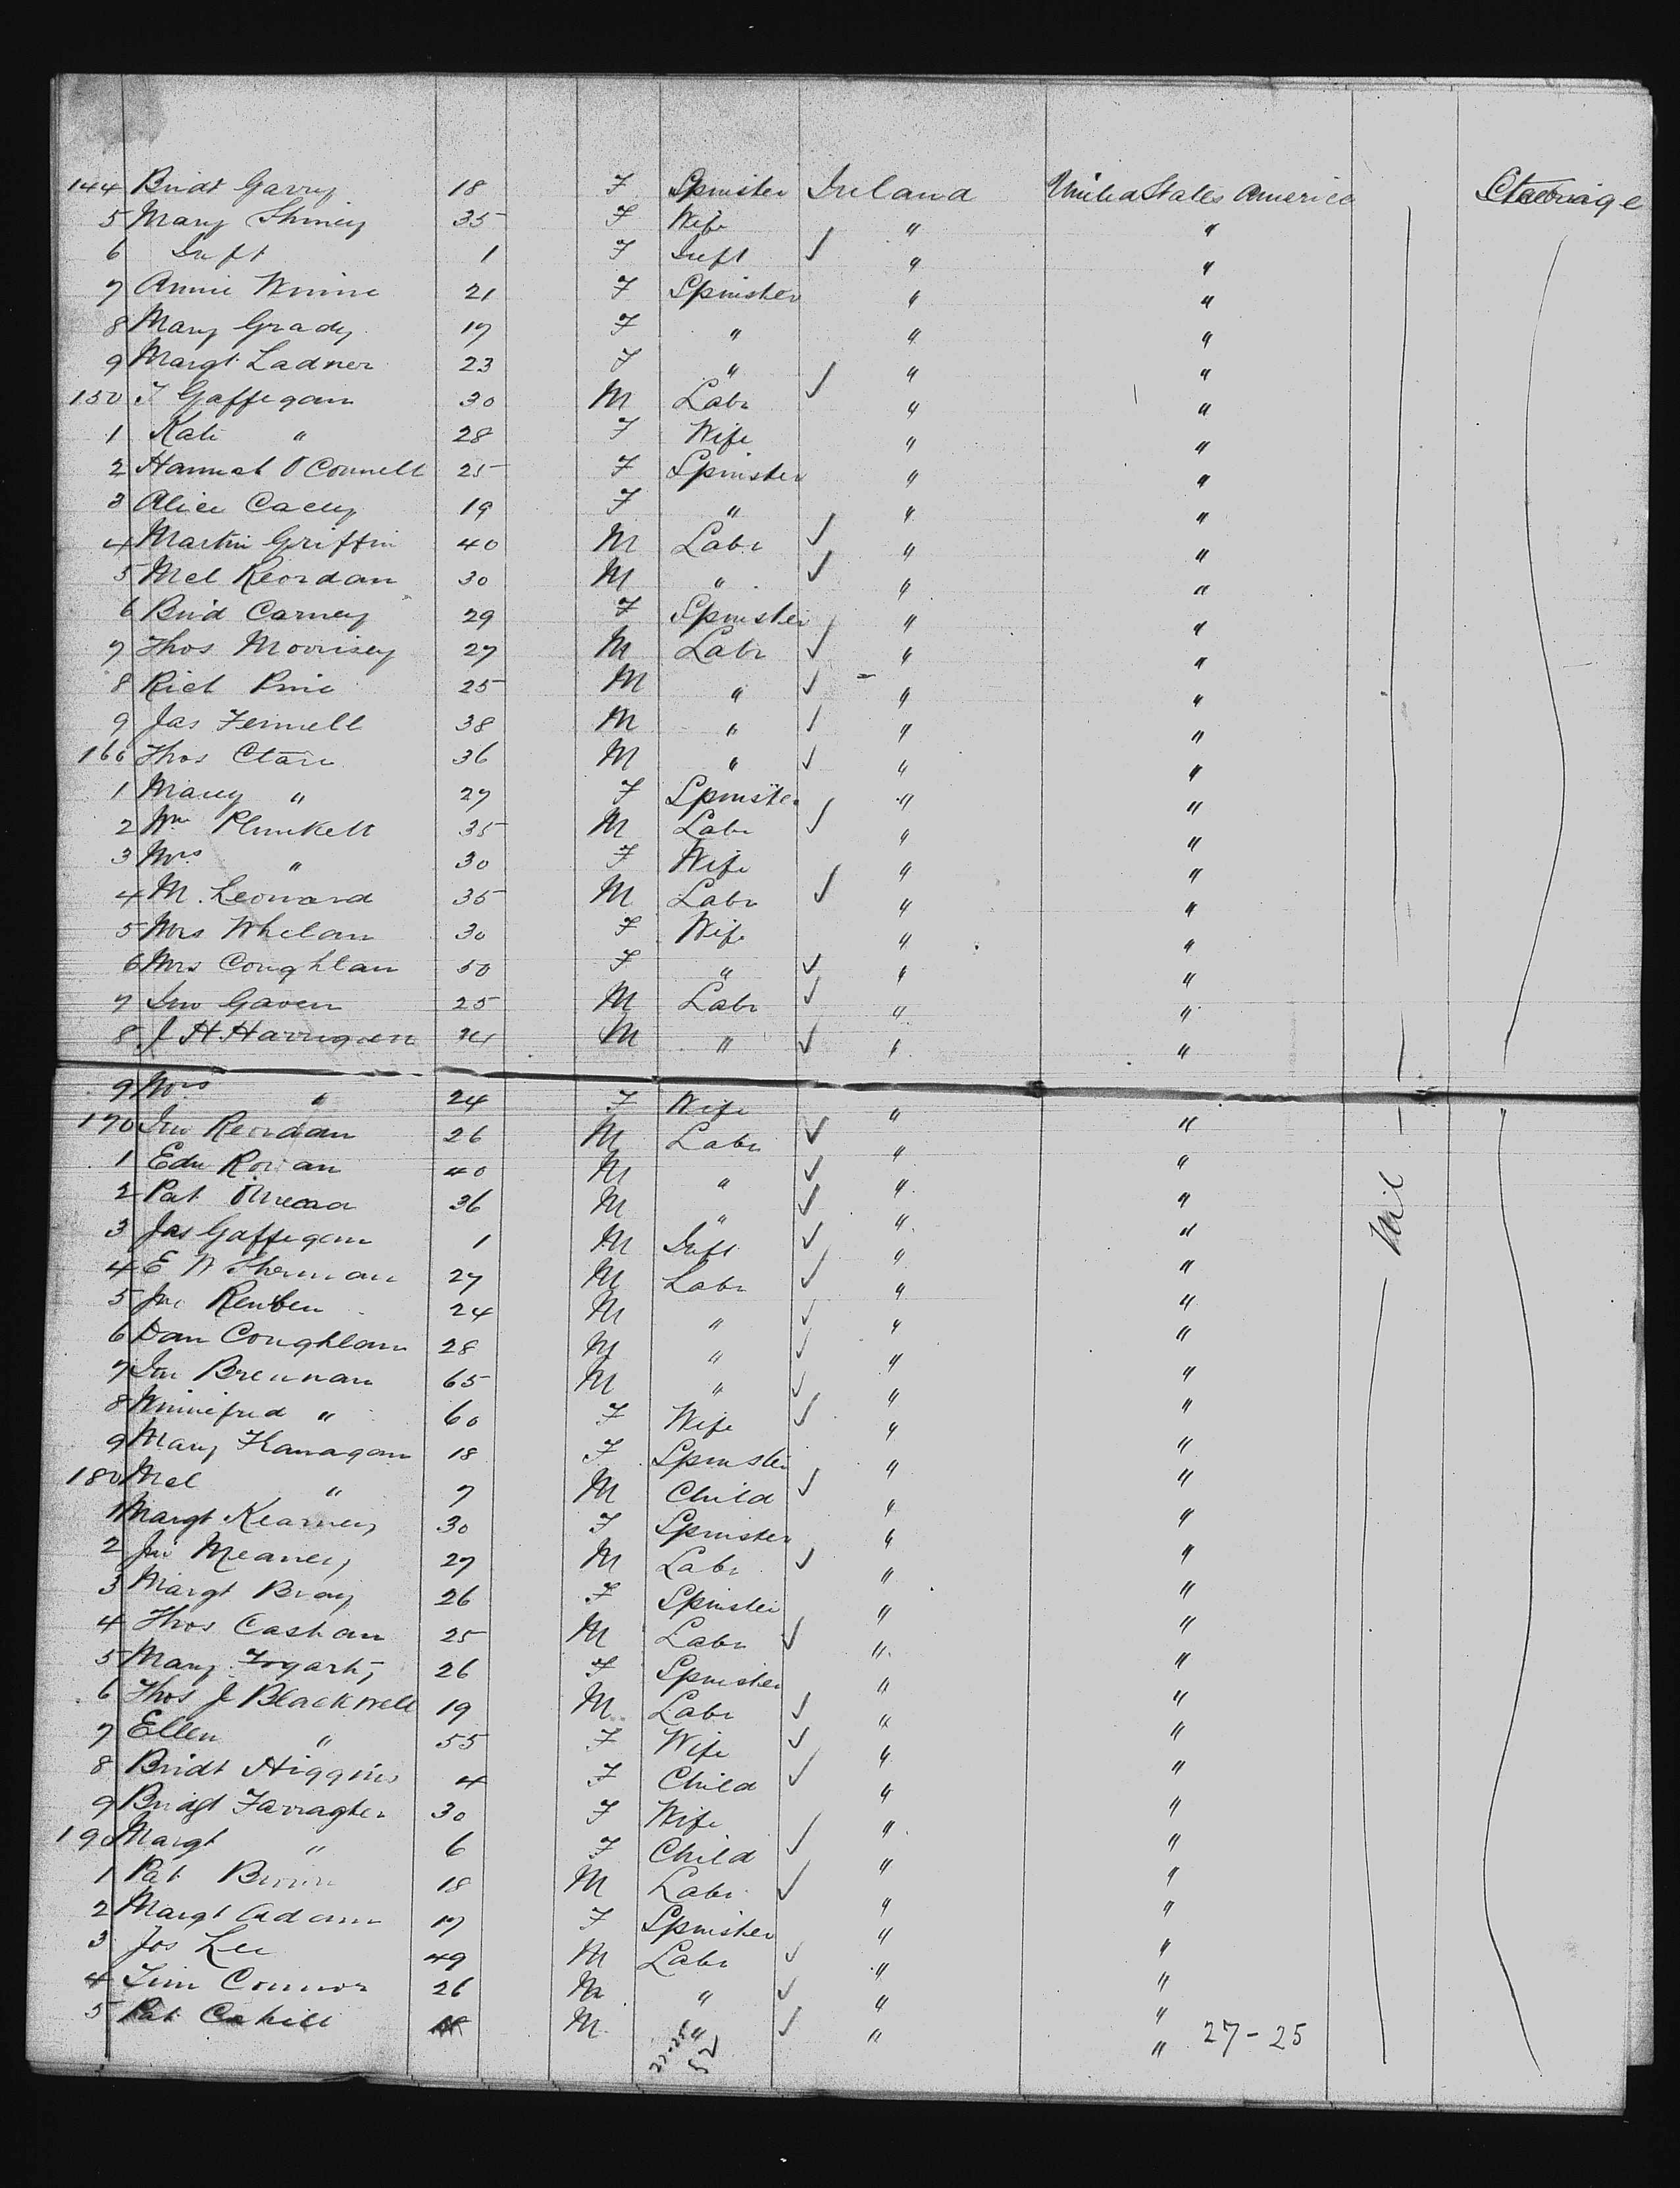 144 Bridt Garry 18 F Spinster Ireland United States America Steerage
5 Mary 35 F Wife " "
6 Inft 1 F Inft ✓ " "
7 Annie Winne 21 F Spinster " "
8 Mary Grady 17 F " " "
9 Margt Ladner 23 F " " "
150 J Gaffegan 30 M Labr ✓ " "
1 Kate " 28 F Wife " "
2 Hannah O Connell 25 F Spinster " "
3 Alice Casey 19 F " " "
4 Martin Griffin 40 M Labr ✓ " "
5 Mcl Reordan 30 M " ✓ " "
6 Brid Carney 29 F Spinster " "
7 Thos Morrisey 27 M Labr ✓ " "
8 Rich 25 M " ✓ " "
9 Jas Fennell 38 M " ✓ " "
160 Thos 36 M " ✓ " "
1 Mary " 27 F Spinster " "
2 Wm Plunkett 35 M Labr ✓ " "
3 Mrs " 30 F Wife " "
4 M. Leonard 35 M Labr ✓ " "
5 Mrs Whelan 30 F Wife " "
6 Mrs Coughlan 50 F " ✓ " "
7 Jno Gaven 25 M Labr ✓ " "
8 J H Harrigan M " ✓ " "
9 Mrs " 24 F Wife " "
170 Jno Reordan 26 M Labr ✓ " "
1 Edw 40 M " ✓ " "
2 Pat 36 M " ✓ " " Nil
3 Jas Gaffegan 1 M Inft ✓ " "
4 E W Sherman 27 M Labr ✓ " "
5 Jno Reuben 24 M " ✓ " "
6 Dan Coughlan 28 M " ✓ " "
7 Jno Brennan 65 M " ✓ " "
8 Winnefred " 60 F Wife ✓ " "
9 Mary Flanagan 18 F Spinster " "
180 Mcl " 7 M Child ✓ " "
1 Margt Kearney 30 F Spinster " "
2 Jno Meaney 27 M Labr ✓ " "
3 Margt Bray 26 F Spinster " "
4 Thos Cashan 25 M Labr ✓ " "
5 Mary Fogarty 26 F Spinster " "
6 Thos J Blackwell 19 M Labr ✓ " "
7 Ellen " 55 F Wife ✓ " "
8 Bridt Higgins 4 F Child ✓ " "
9 Bridgt Farragher 30 F Wife " "
190 Margt " 6 F Child ✓ " "
1 Pat 18 M Labr ✓ " "
2 Margt Adam 17 F Spinster " "
3 Jos Lee 49 M Labr ✓ " "
4 Tim Connor 26 M " ✓ " "
5 Pat Cahill M " ✓ " " 27-25
27-25
52